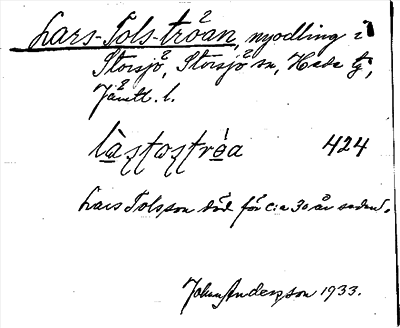 Lars-Tols-tròan, nyodling i
Storsjö, Storsjö sn, Hede tg,
Jämtl. l.
424
Lars Tolsson död för c:a 30 år sedan.
Johan Andersson 1933.